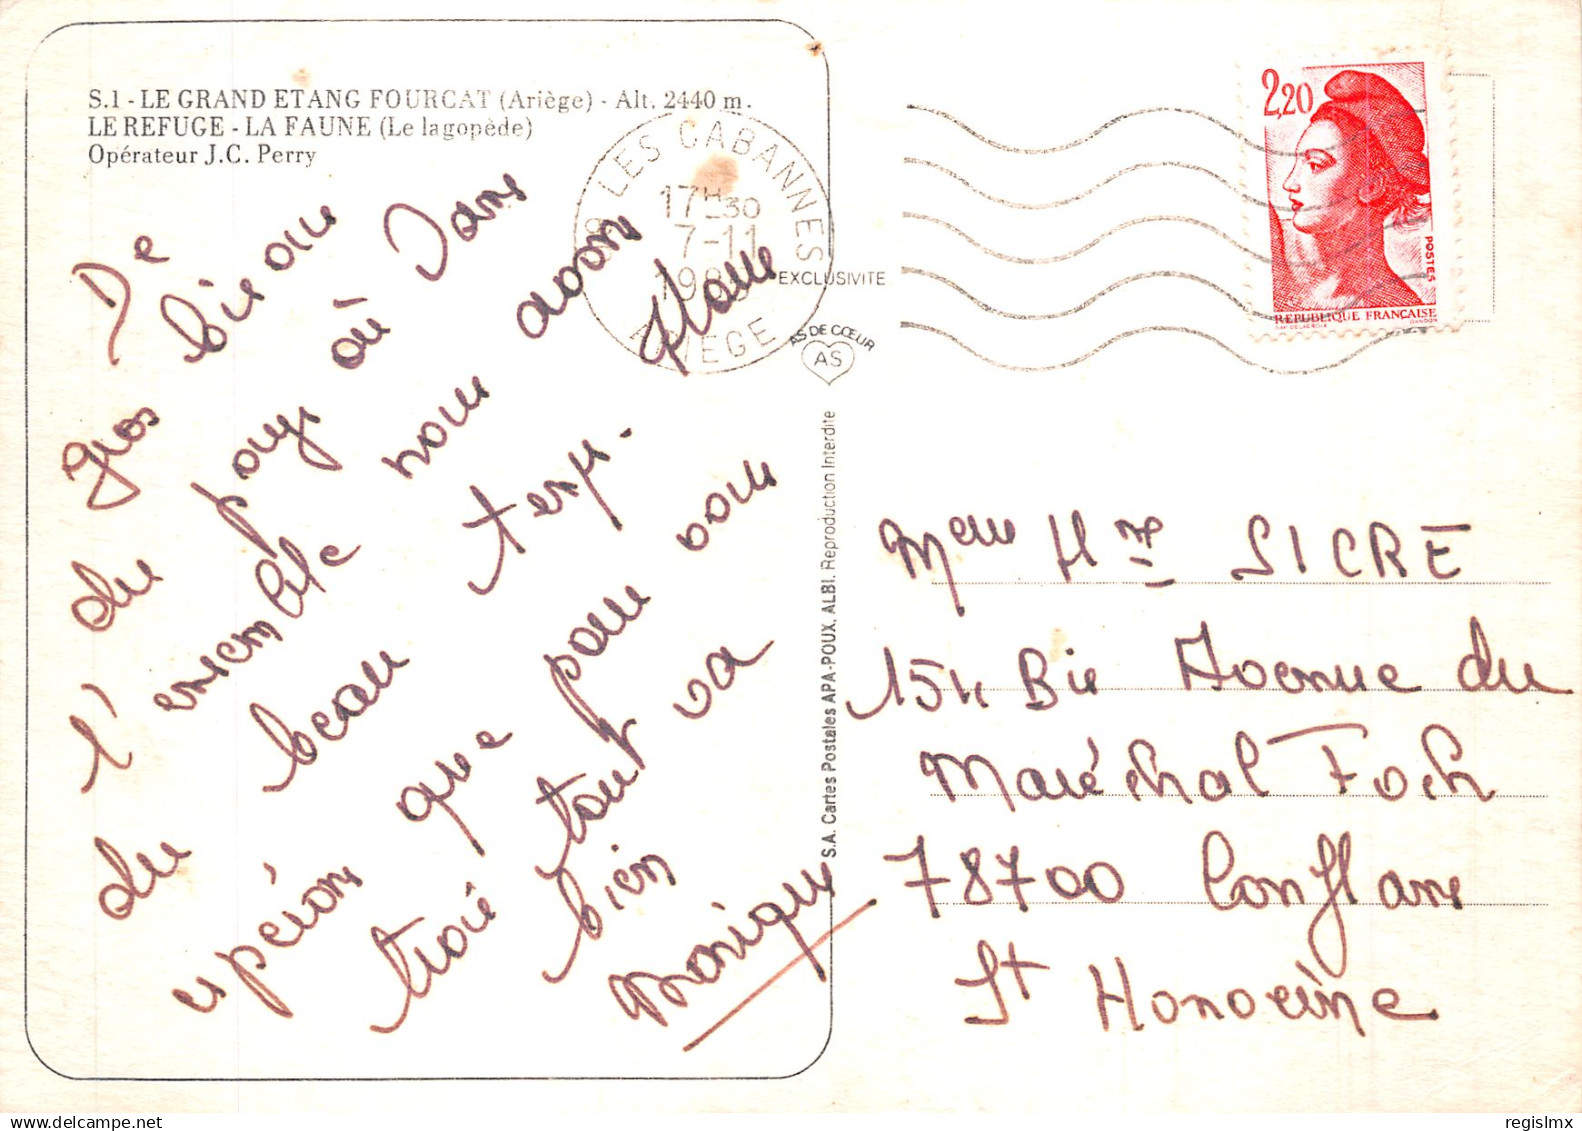 S.1 - LE GRAND ETANG FOURCAT (Ariège) - Alt. 2440 m.
LE REFUGE - LA FAUNE (Le lagopède)
Opérateur J.C. Perry
De
gros bisous
du pays où Dans
l'ensemble nous avons
du beau temps.
espérons que pour vous
trois tout va
bien
Monique
LES CABANNES
17H30
7-11
ARIEGE
EXCLUSIVITE
AS DE CŒUR
AS
S.A. Cartes Postales APA-POUX, ALBI. Reproduction Interdite
2,20
POSTES
REPUBLIQUE FRANÇAISE
GANDON
SICRE
Bis Avenue du
Maréchal Foch
78700 Conflans
St Honorine
regislmx